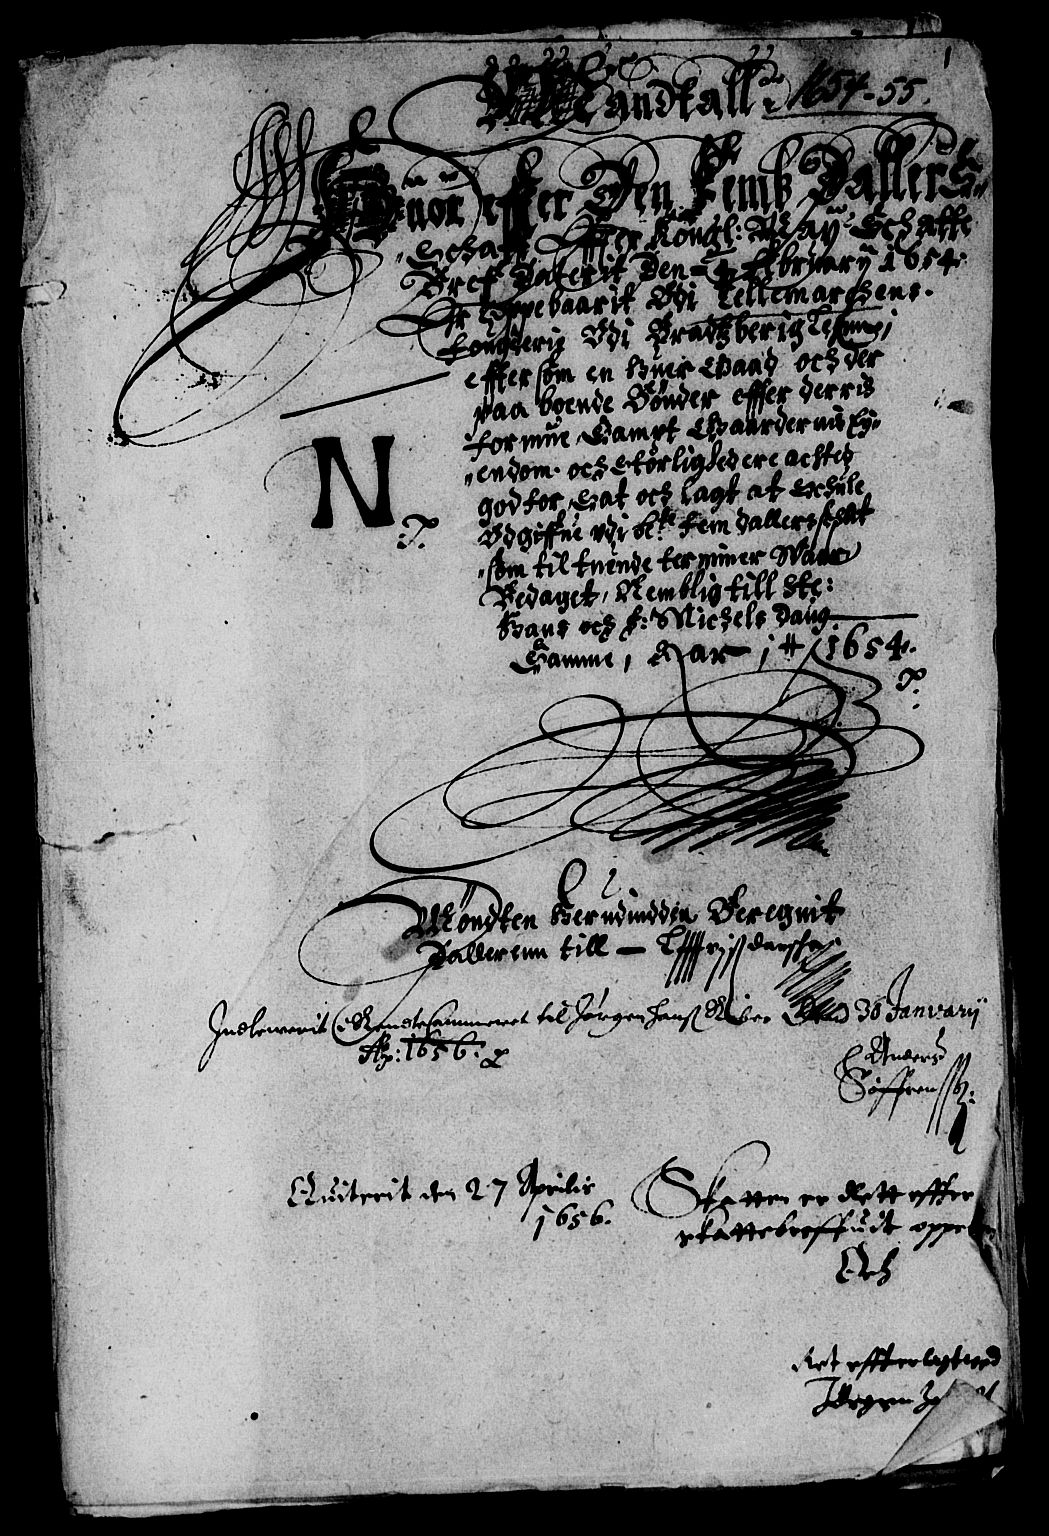 1
Mandtall 1654-55.
Huor effter Den Femb Dallers
Schatt Effter Kongl: May: Schatte
Bref Daterit Den 4 Februarij 1654.
Er Oppebaarit Vdi Tellemarchens
Fougderij Vdi Bradtzberig Lehnn,
effter som en huer Gaad och der
paa boende Bønder effter derris
formue, Sampt Gaardernis Ey-
endom och Størlighed ere achted
god for, Sat och lagt at Schule
Vdgiffue vdi bete fem dallers schat
som til tuende terminer Waar
Bedaget, Nemblig till Ste:
Hans och S: Michels Daug
Samme, Aar, 1654.
N
Mondten herudinddin Beregnit
Dallerenn till —
Indleverit i Rendtecammeret til Jørgen Hanß den 30 Janvarij
Ao: 1656.
Anders
Søffrenß
Quiterit den 27 Aprilis
1656.
Skatten er Rett effter
skattebreffuit oppe
Och
Ret effterlagt ved
Jørgen